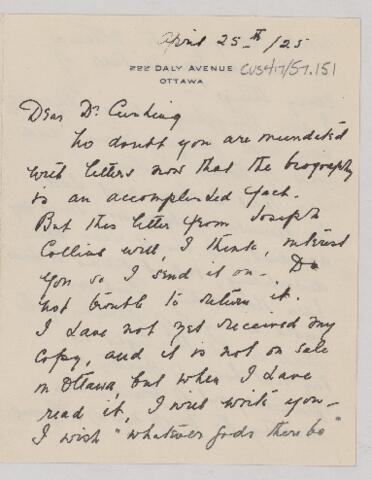 April 25th/25
222 DALY AVENUE
OTTAWA
CUS417/57.151
Dear Dr Cushing
No doubt you are inundated
with letters now that the biography
is an accomplished fact.
But this letter from Joseph
Collins will, I think, interest
you so I send it on - Do
not trouble to return it.
I have not yet received my
copy, and it is not on sale
in Ottawa, but when I have
read it, I will write you -
I wish "whatever gods there be"